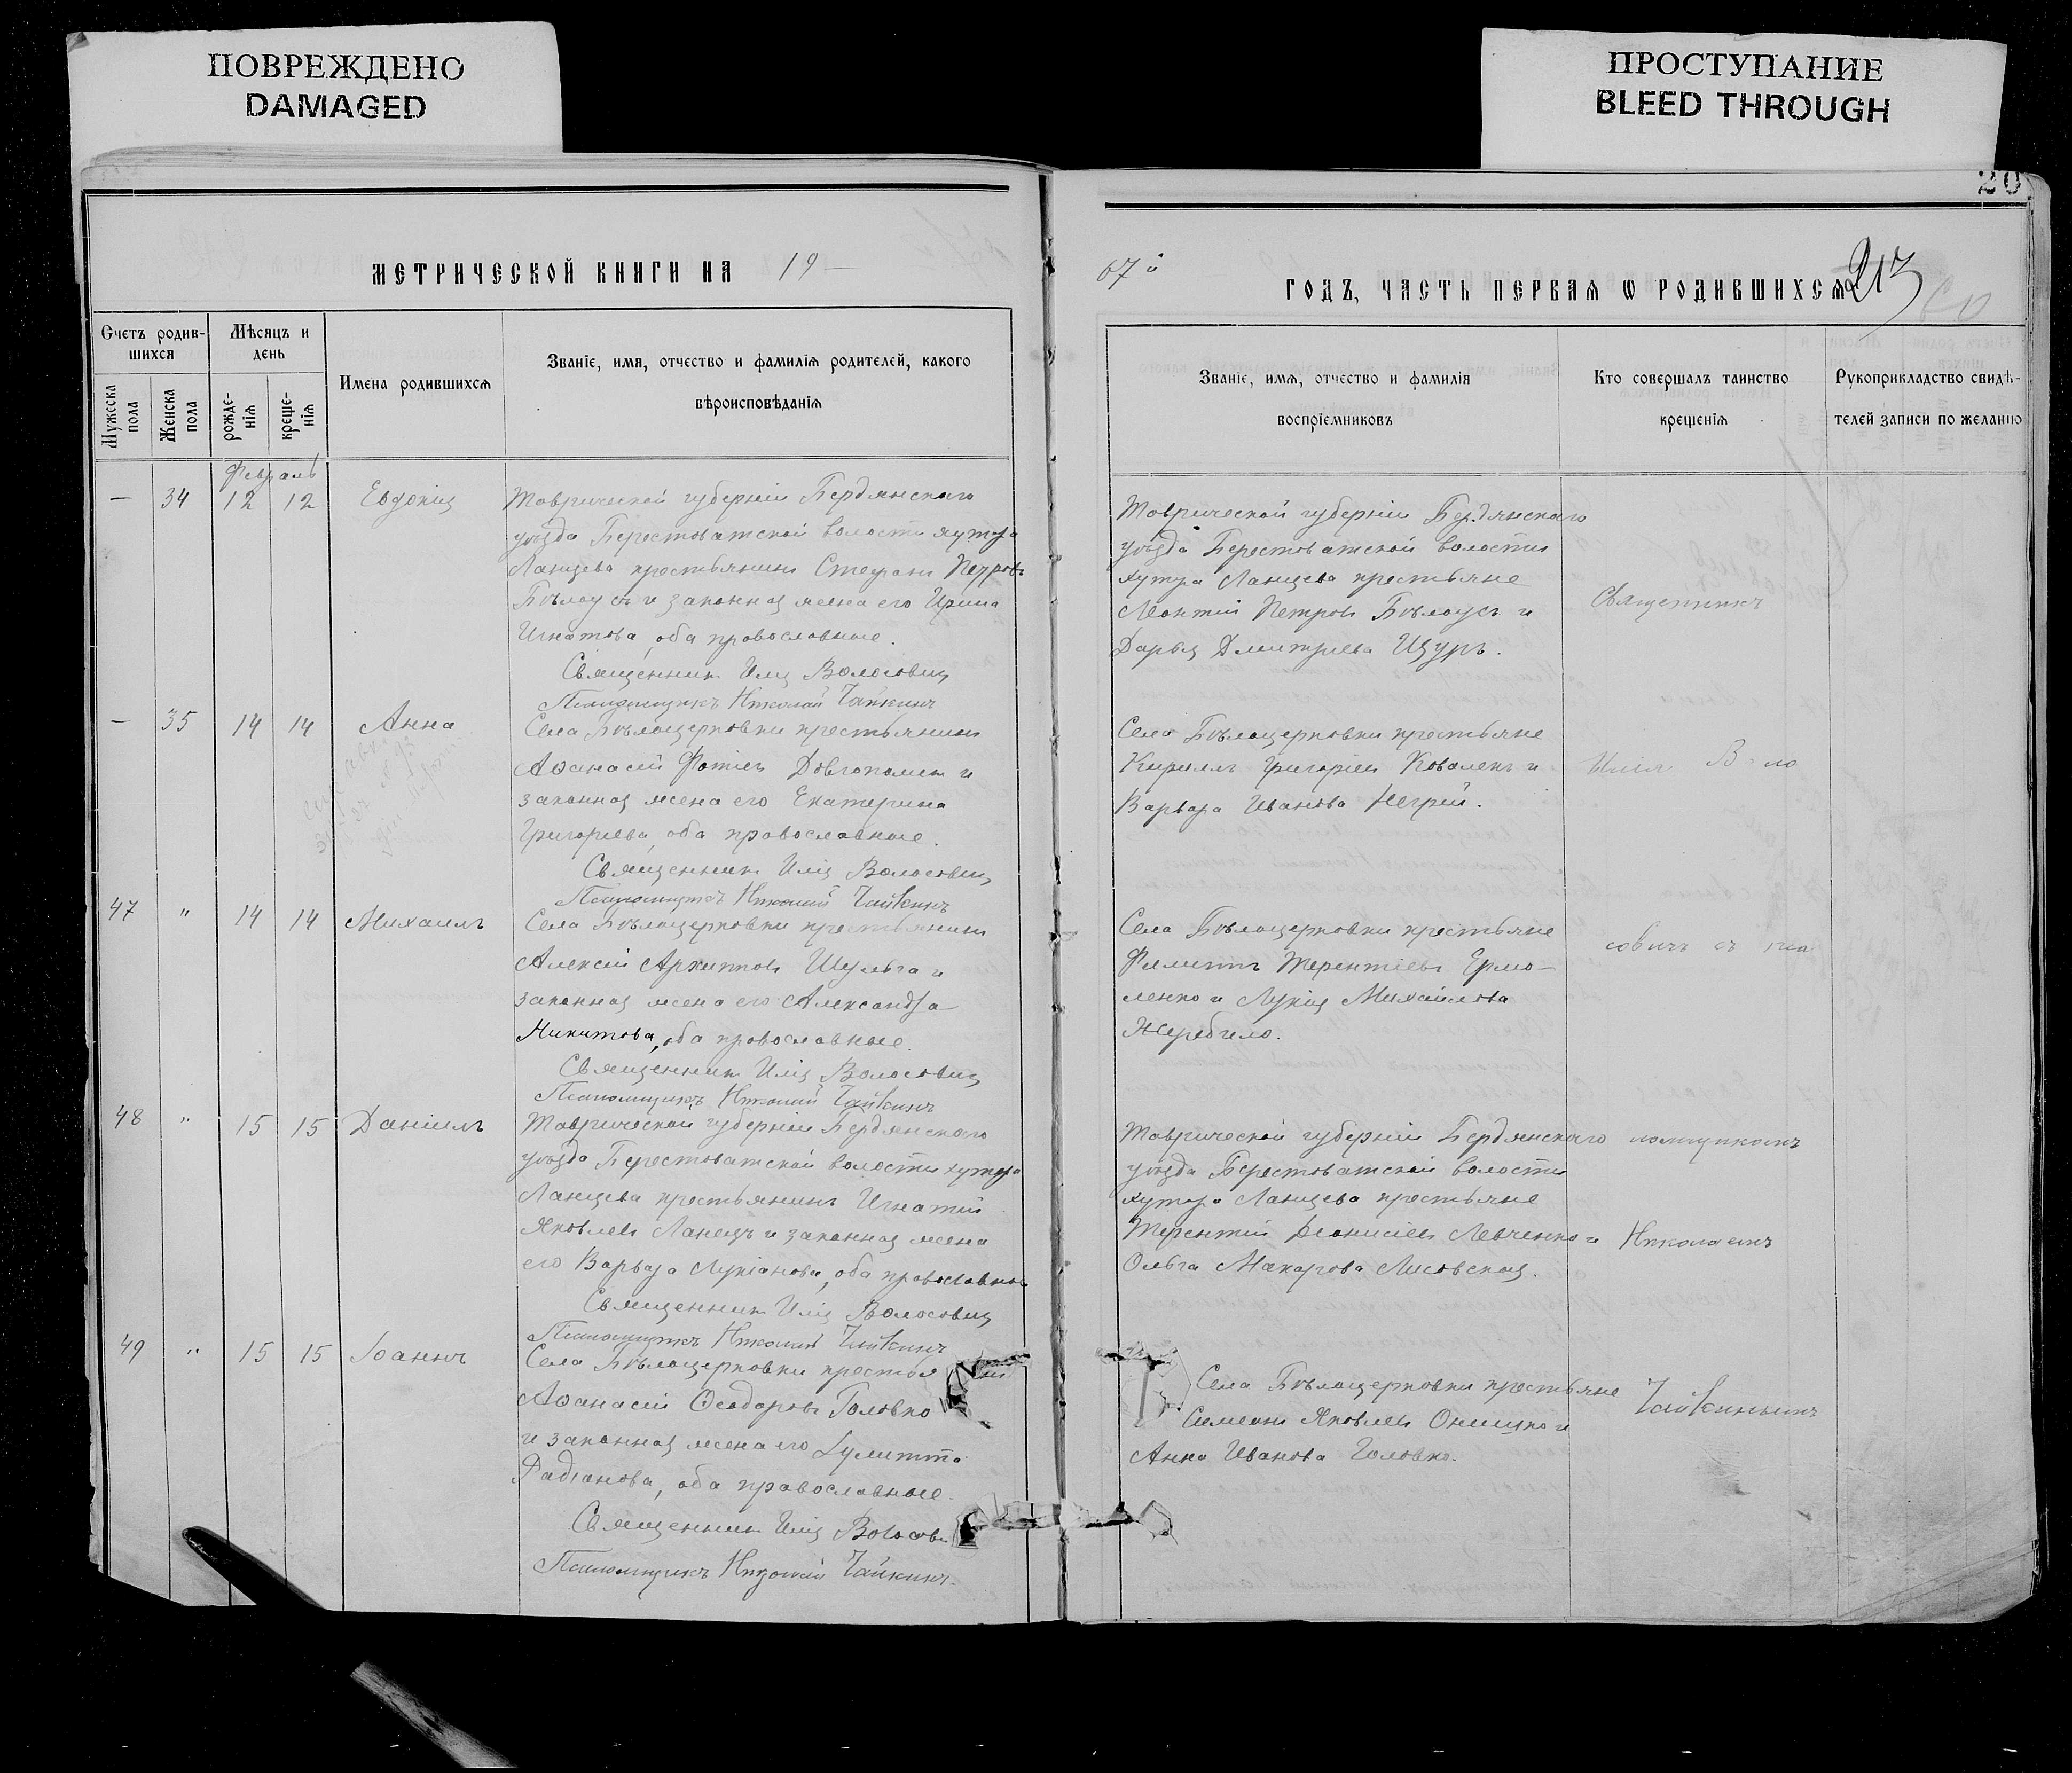 ПОВРЕЖДЕНО
DAMAGED
ПРОСТУПАНИЕ
BLEED THROUGH
20
МЕТРИЧЕСКОЙ КНИГИ НА 19—
Счетъ родив-
шихся
Мѣсяцъ и
день
Мужеска
пола
Женска
пола
рожде-
нія
креще-
нія
Имена родившихся
Званіе, имя, отчество и фамилія родителей, какого
вѣроисповѣданія
Февраль
— 34 12 12 Евдокія
Таврической губерніи Бердянскаго
уѣзда Берестоватской волости хутора
Ланцева крестьянинъ Стефанъ Петровъ
Бѣлоусъ и законная жена его Ирина
Игнатова, оба православные.
Священникъ Илія Волосовичъ
Псаломщикъ Николай Чайкинъ
— 35 14 14 Анна
Села Бѣлоцерковки крестьянинъ
Аѳанасій Фотіевъ Довгополый и
законная жена его Екатерина
Григорьева, оба православные.
Священникъ Илія Волосовичъ
Псаломщикъ Николай Чайкинъ
47 " 14 14 Михаилъ
Села Бѣлоцерковки крестьянинъ
Алексій Архиповъ Шульга и
законная жена его Александра
Никитова, оба православные.
Священникъ Илія Волосовичъ
Псаломщикъ Николай Чайкинъ
48 " 15 15 Даніилъ
Таврической губерніи Бердянскаго
уѣзда Берестоватской волости хутора
Ланцева крестьянинъ Игнатій
Яковлевъ Ланецъ и законная жена
его Варвара Лукіанова, оба православные
Священникъ Илія Волосовичъ
Псаломщикъ Николай Чайкинъ
49 " 15 15 Іоаннъ
Села Бѣлоцерковки крестья
Аѳанасій Ѳеодоровъ Головко
и законная жена его Іулитта
Фадіанова, оба православные.
Священникъ Илія Волосов
Псаломщикъ Николай Чайкинъ.
07й ГОДЪ, ЧАСТЬ ПЕРВАЯ Ѡ РОДИВШИХСЯ 213
Званіе, имя, отчество и фамилія
воспріемниковъ
Кто совершалъ таинство
крещенія
Рукоприкладство свидѣ-
телей записи по желанію
Таврической губерніи Бердянскаго
уѣзда Берестоватской волости
хутора Ланцева крестьяне
Леонтій Петровъ Бѣлоусъ и
Дарья Дмитріева Щуръ.
Села Бѣлоцерковки крестьяне
Кириллъ Григоріевъ Коваленъ и
Варвара Иванова Негрей.
Села Бѣлоцерковки крестьяне
Филиппъ Терентіевъ Ермо-
ленко и Лукія Михайлова
Жеребило.
Таврической губерніи Бердянскаго
уѣзда Берестоватской волости
хутора Ланцева крестьяне
Терентій Діонисіевъ Левченко и
Ольга Макарова Лисовская.
Села Бѣлоцерковки крестьяне
Симеонъ Яковлевъ Онищко и
Анна Иванова Головко.
Священникъ
Илія Воло
совичъ съ пса
ломщикомъ
Николаемъ
Чайкинымъ